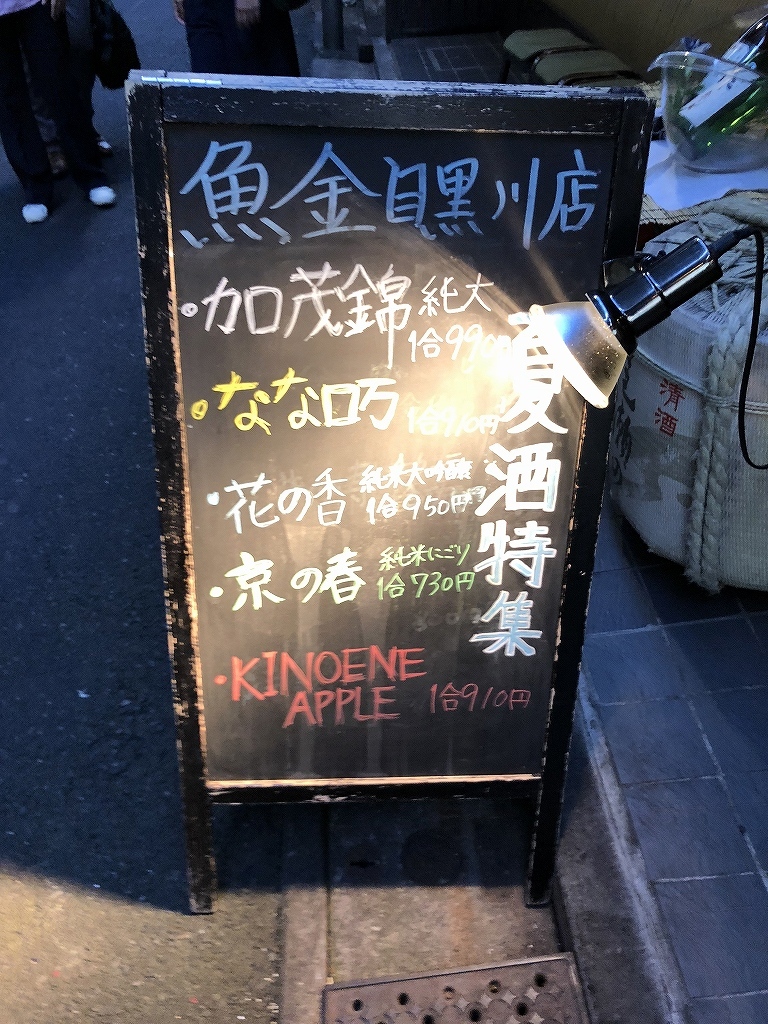 魚金目黒川店
・加茂錦 純大
1合990円
・なな口万 1合910円
・花の香 純米大吟醸
1合950円
・京の春 純米にごり
1合730円
・KINOENE
APPLE 1合910円
夏酒特集
清酒